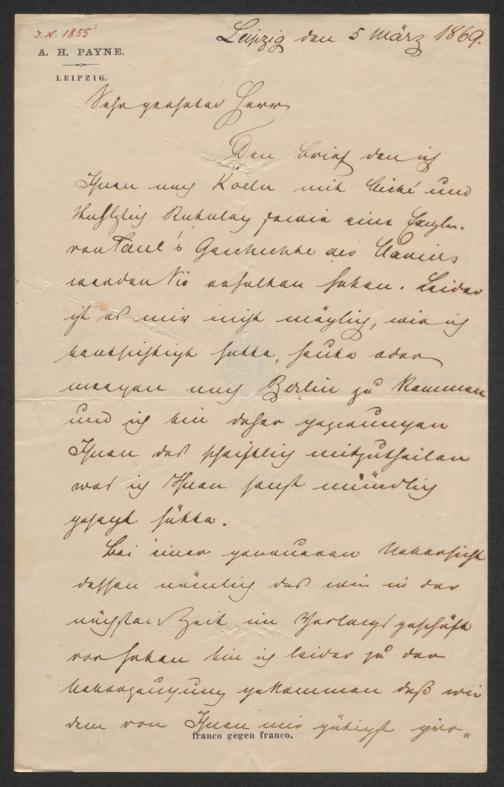 J. N. 1855
A. H. PAYNE.
LEIPZIG.
Leipzig den 5 März 1869.
Sehr geehrter Herr
Den Brief den ich
Ihnen nach Koeln mit und
sowie eine
von Paul's Geschichte des Claviers
werden Sie erhalten haben. Leider
ist es mir nicht möglich, wie ich
beabsichtigt hatte, heute oder
morgen nach Berlin zu kommen
und ich bin daher gezwungen
Ihnen das schriftlich mitzutheilen
was ich Ihnen sonst mündlich
gesagt hätte.
Bei einer genaueren Uebersicht
dessen nämlich das wir in der
nächsten Zeit im Verlagsgeschäft
vor haben bin ich leider zu der
Ueberzeugung gekommen daß wir
dem von Ihnen mir gütigst
franco gegen franco.